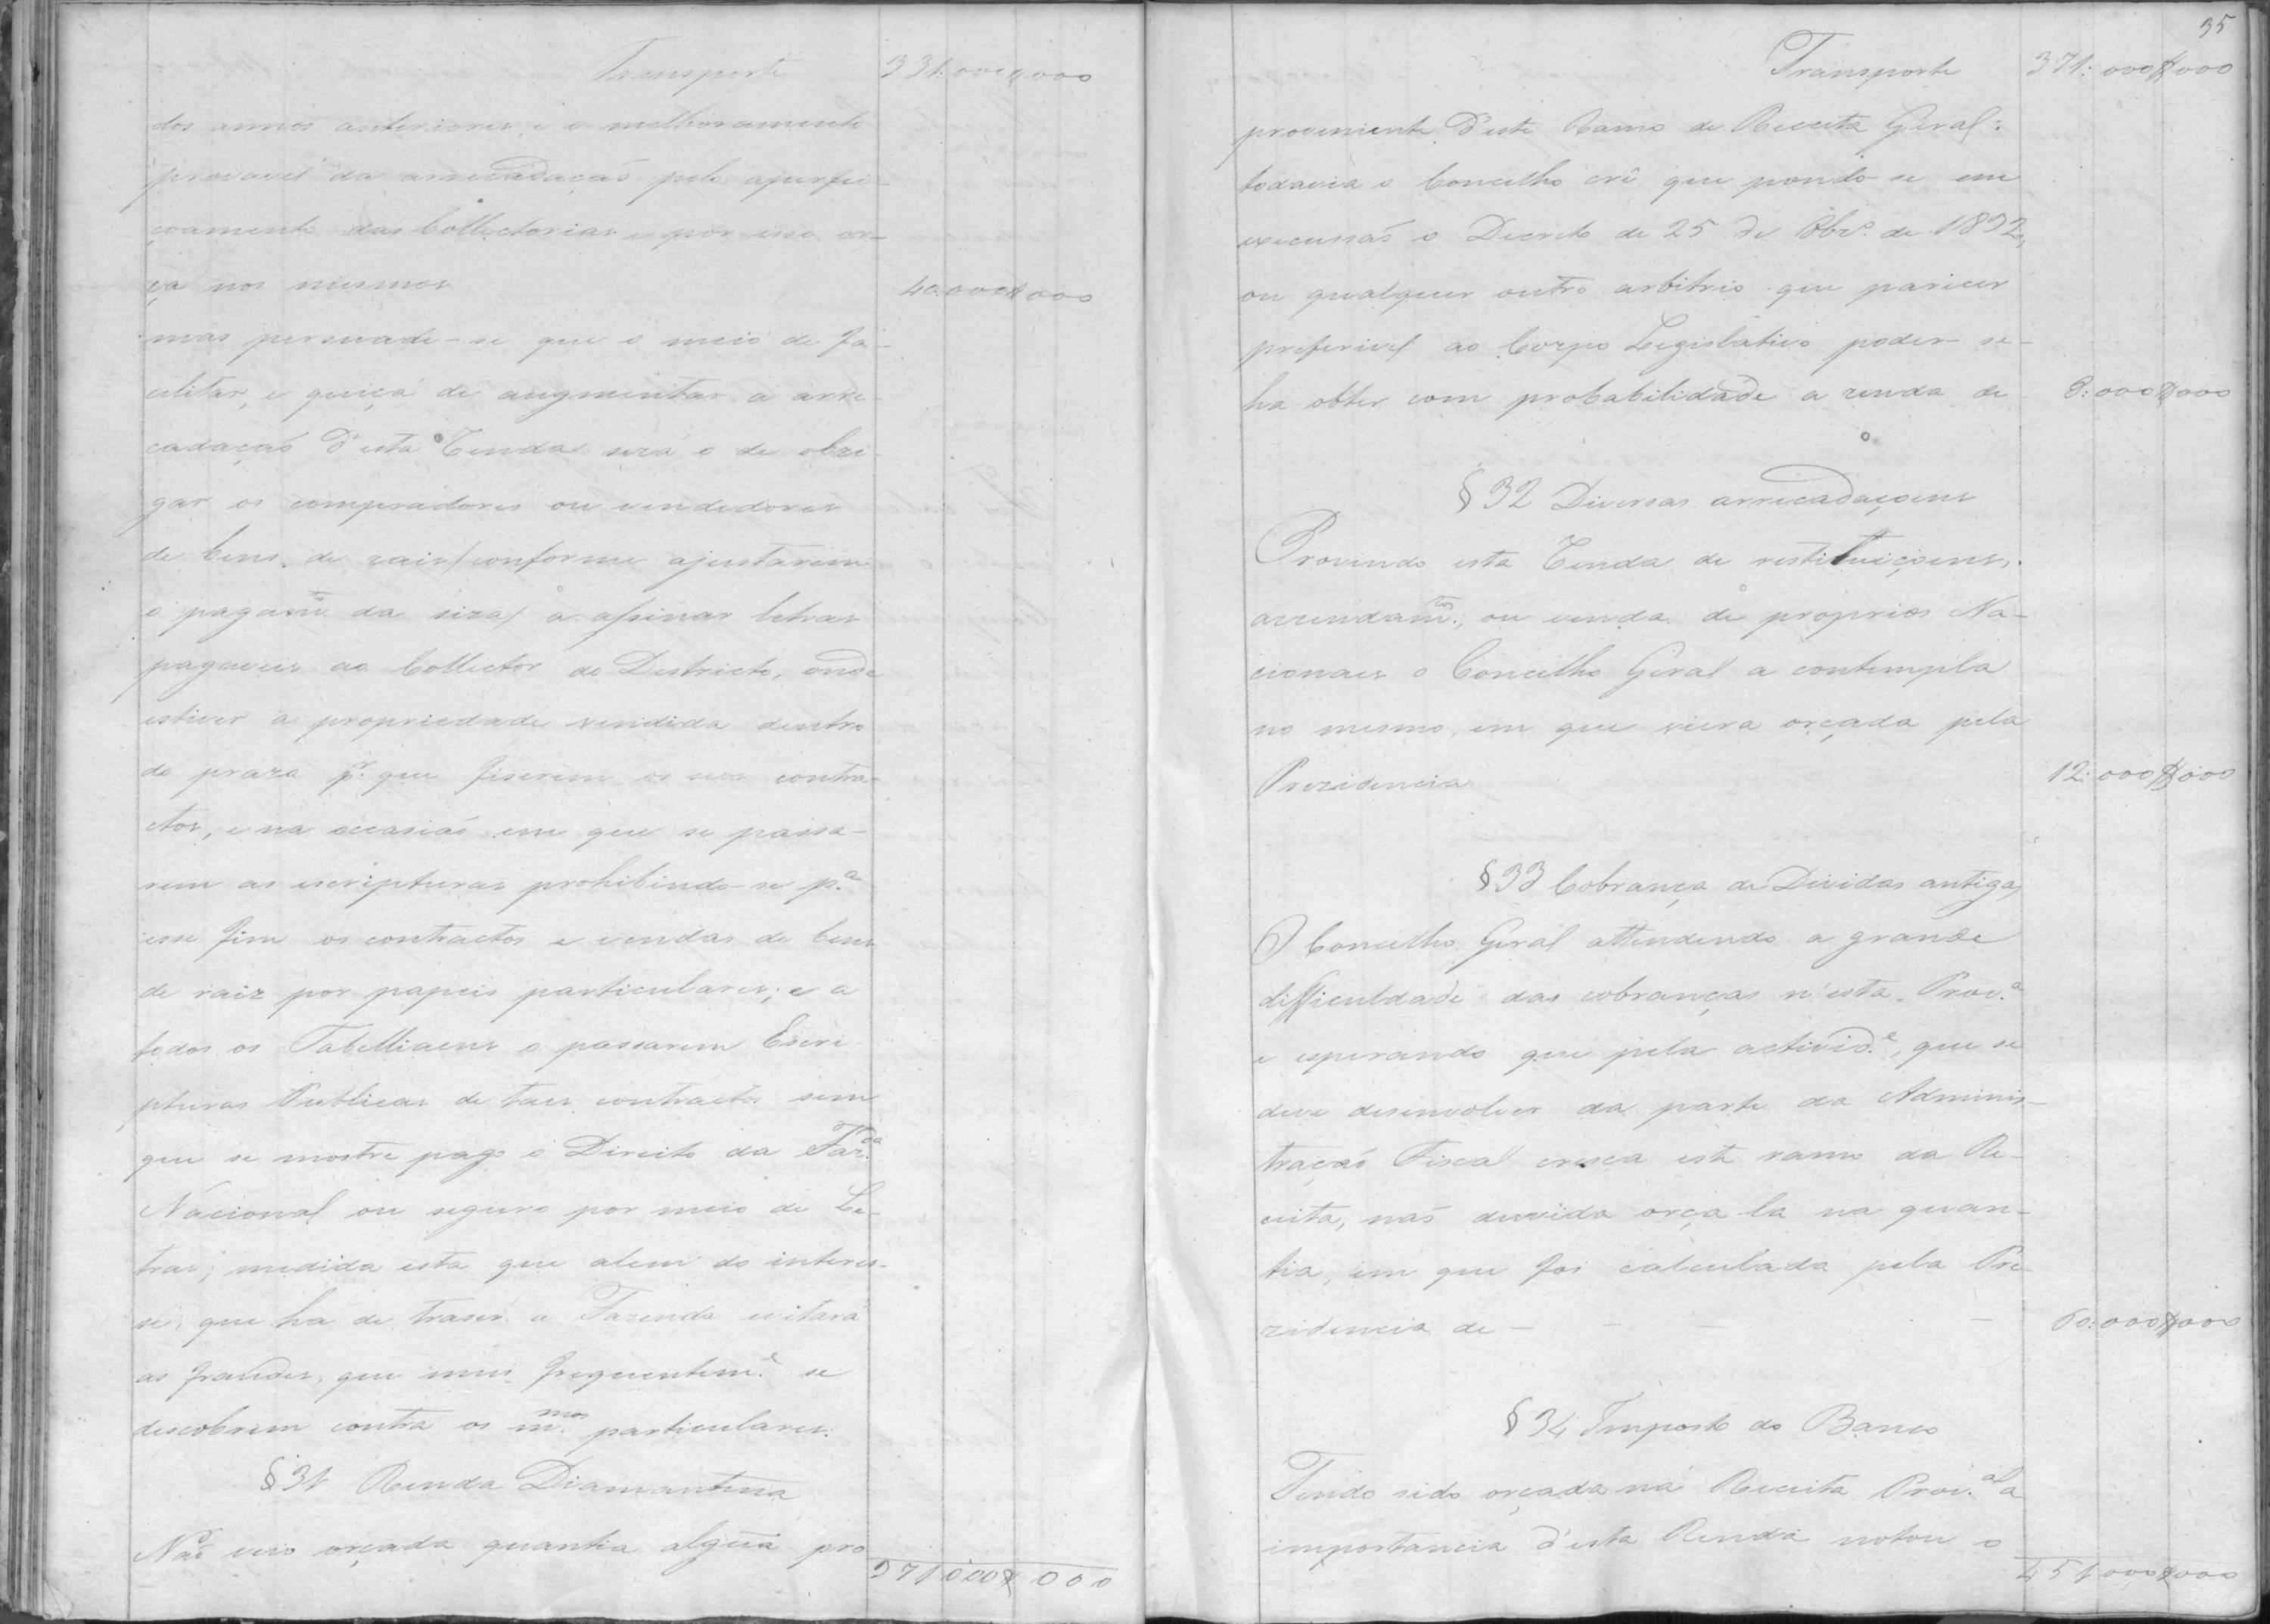 Transporte 331:000$000
dos annos anteriores, e o melhoramento
provavel da arrecadaçaõ pelo aperfei-
çoamento das Collectorias e por isso or-
ça nos mesmos 40:000$000
mas persuade-se que o meio de fa-
cilitar, e quiçá de augmentar a arre-
cadaçaõ d'esta Renda será o de obri-
gar os compradores ou vendedores
de bens de raiz (conforme ajustarem
o pagam.to da siza) a assinar letras
pagaveis ao Collector do Districto, onde
estiver a propriedade vendida dentro
do prazo p.r que fiserem os seos contra-
ctos, e na occasiaõ em que se passa-
rem as escripturas prohibindo-se p.a
esse fim os contractos e vendas de bens
de raiz por papeis particulares; e a
todos os Tabelliaens o passarem Escri-
pturas Publicas de taes contractos sem
que se mostre pago o Direito da Faz.da
Nacional ou seguro por meio de Le-
tras; medida esta que alem do interes-
se, que ha de traser a Fazenda evitará
as fraudes, que mui frequentem.e se
descobrem contra os m.mos particulares.
§31 Renda Diamantina
Naõ veio orçada quantia algũa pro
371:000$000
35
Transporte 371:000$000
proveniente d'este Ramo de Receita Geral:
todavia o Concelho crê que pondo-se em
execussaõ o Decreto de 25 de 8br.o de 1832,
ou qualquer outro arbitrio que parecer
preferivel ao Corpo Legislativo poder-se-
ha obter com probabilidade a renda de 8:000$000
§32 Diversas arrecadaçoens
Provindo esta Renda de restituiçoens,
arrendam.tos, ou venda de proprios Na-
cionaes o Concelho Geral a contempla
no mesmo, em que viera orçada pela
Prezidencia 12:000$000
§33 Cobrança de Dividas antigas
O Concelho Geral attendendo a grande
difficuldade das cobranças n'esta Prov.a
e esperando que pela activid.e, que se
deve desenvolver da parte da Adminis-
traçaõ Fiscal cresça este ramo da Re-
ceita, naõ duvida orça-la na quan-
tia, em que foi calculada pela Pre-
zidencia de - - - - 60:000$000
§34 Imposto do Banco
Tendo sido orçada na Receita Prov.al a
importancia d'esta Renda notou o
451:000$000